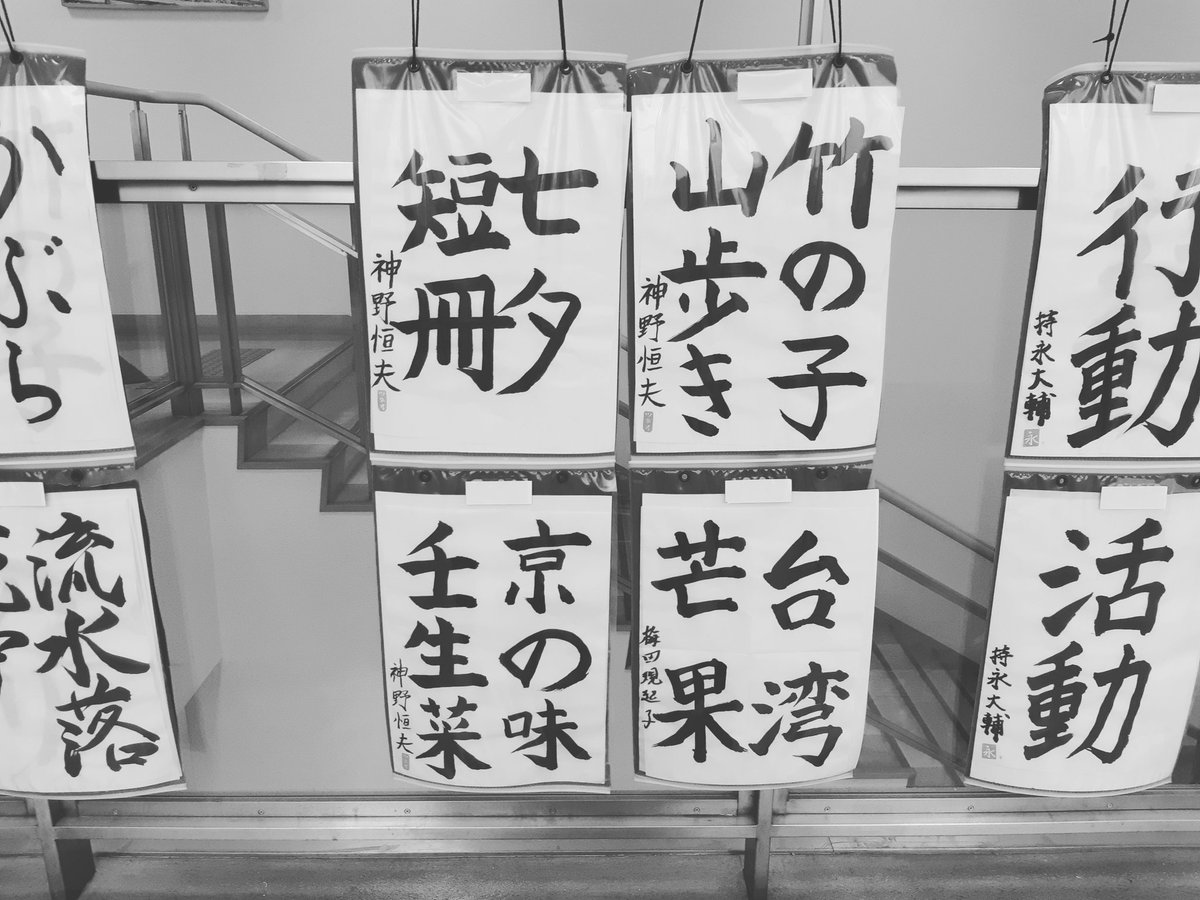 かぶら
七夕
短冊
神野恒夫
竹の子
山歩き
神野恒夫
行動
持永大輔
永
流水落
京の味
壬生菜
神野恒夫
台湾
芒果
活動
持永大輔
永